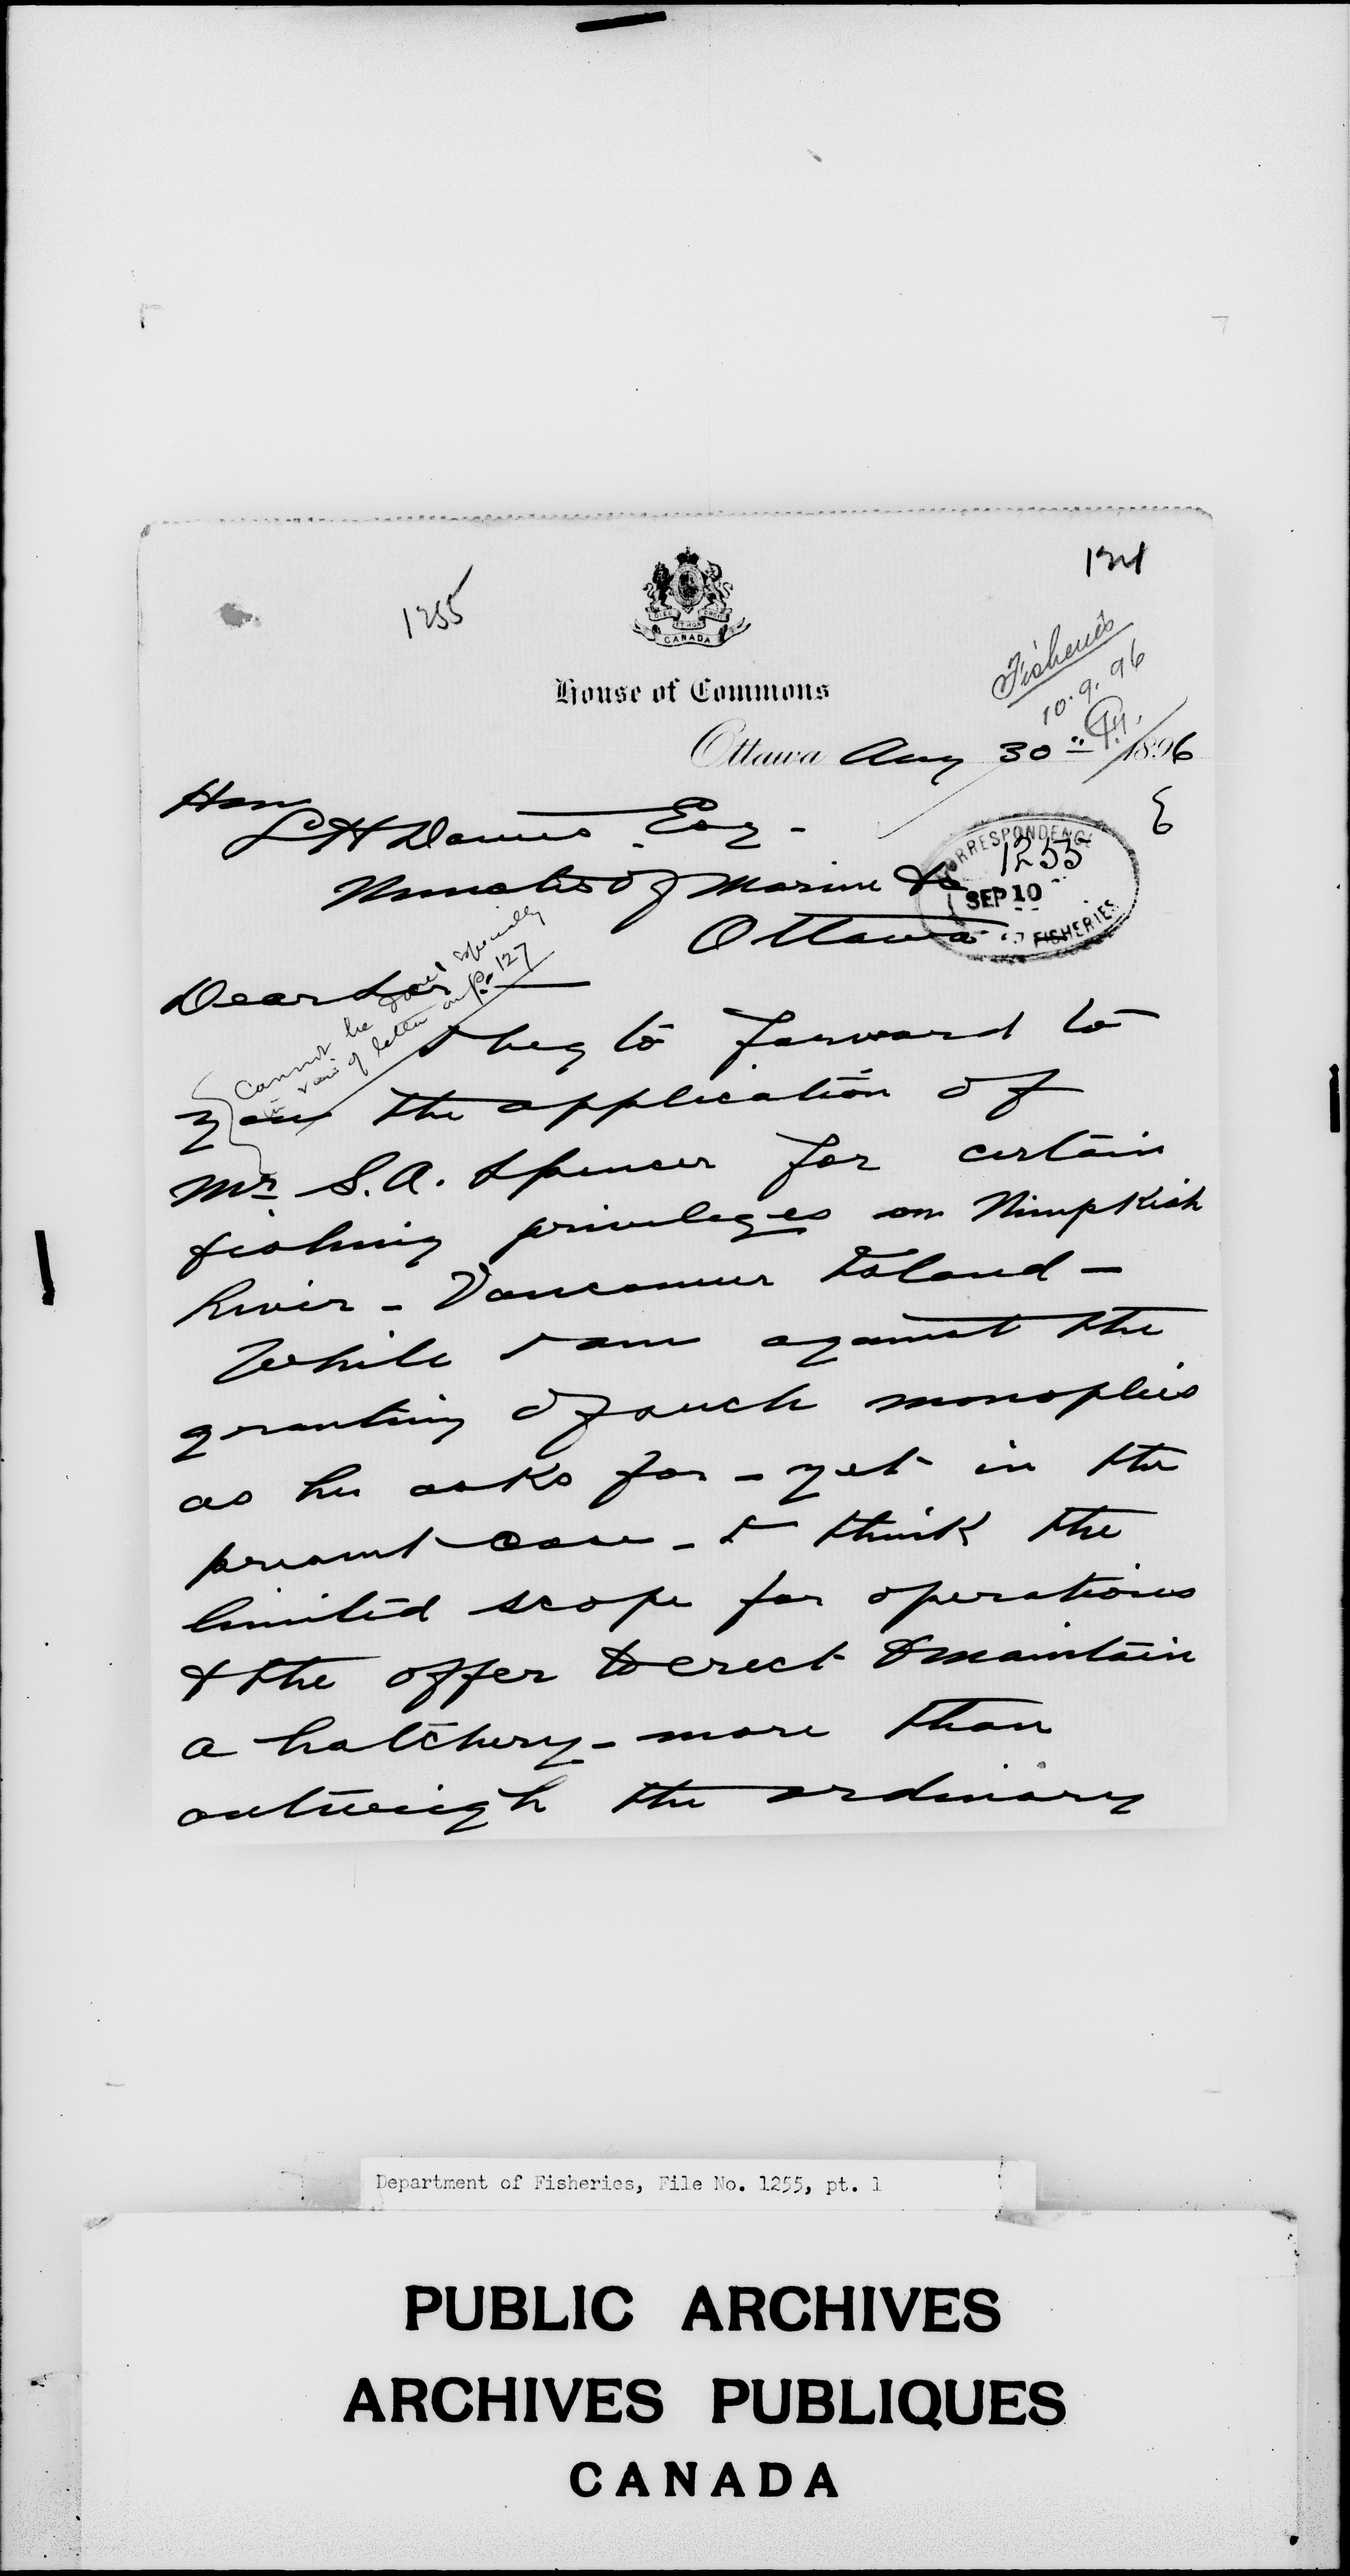 1255
124
CANADA
House of Commons
Fisheries
10.9.96
Ottawa Aug 30th 1896
Hon
L H Davies Esq -
Minister of Marine &c
Ottawa
CORRESPONDENCE
1255
SEP 10
FISHERIES
Dear Sir
Cannot be done specially
in view of letter on p. 127
I beg to forward to
you the application of
Mr S. A. Spencer for certain
fishing privileges on Nimpkish
River - Vancouver Island -
While I am against the
granting of such monoplies
as he asks for - yet in the
present case - I think the
limited scope for operations
& the offer to erect & maintain
a hatchery - more than
outweigh the ordinary
Department of Fisheries, File No. 1255, pt. 1
PUBLIC ARCHIVES
ARCHIVES PUBLIQUES
CANADA